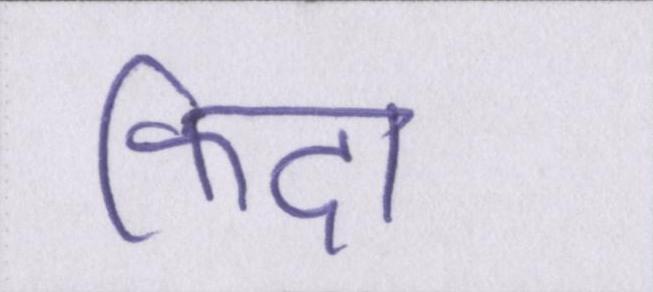 किदा